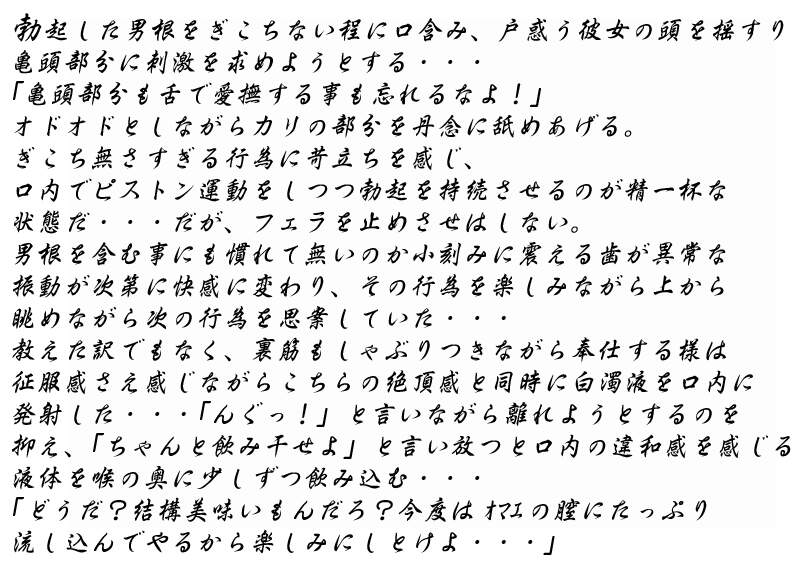 勃起した男根をぎこちない程に口含み、戸惑う彼女の頭を揺すり
亀頭部分に刺激を求めようとする・・・
「亀頭部分も舌で愛撫する事も忘れるなよ！」
オドオドとしながらカリの部分を丹念に舐めあげる。
ぎこち無さすぎる行為に苛立ちを感じ、
口内でピストン運動をしつつ勃起を持続させるのが精一杯な
状態だ・・・だが、フェラを止めさせはしない。
男根を含む事にも慣れて無いのか小刻みに震える歯が異常な
振動が次第に快感に変わり、その行為を楽しみながら上から
眺めながら次の行為を思案していた・・・
教えた訳でもなく、裏筋もしゃぶりつきながら奉仕する様は
征服感さえ感じながらこちらの絶頂感と同時に白濁液を口内に
発射した・・・「んぐっ！」と言いながら離れようとするのを
抑え、「ちゃんと飲み干せよ」と言い放つと口内の違和感を感じる
液体を喉の奥に少しずつ飲み込む・・・
「どうだ？結構美味いもんだろ？今度はｵﾏｴの膣にたっぷり
流し込んでやるから楽しみにしとけよ・・・」